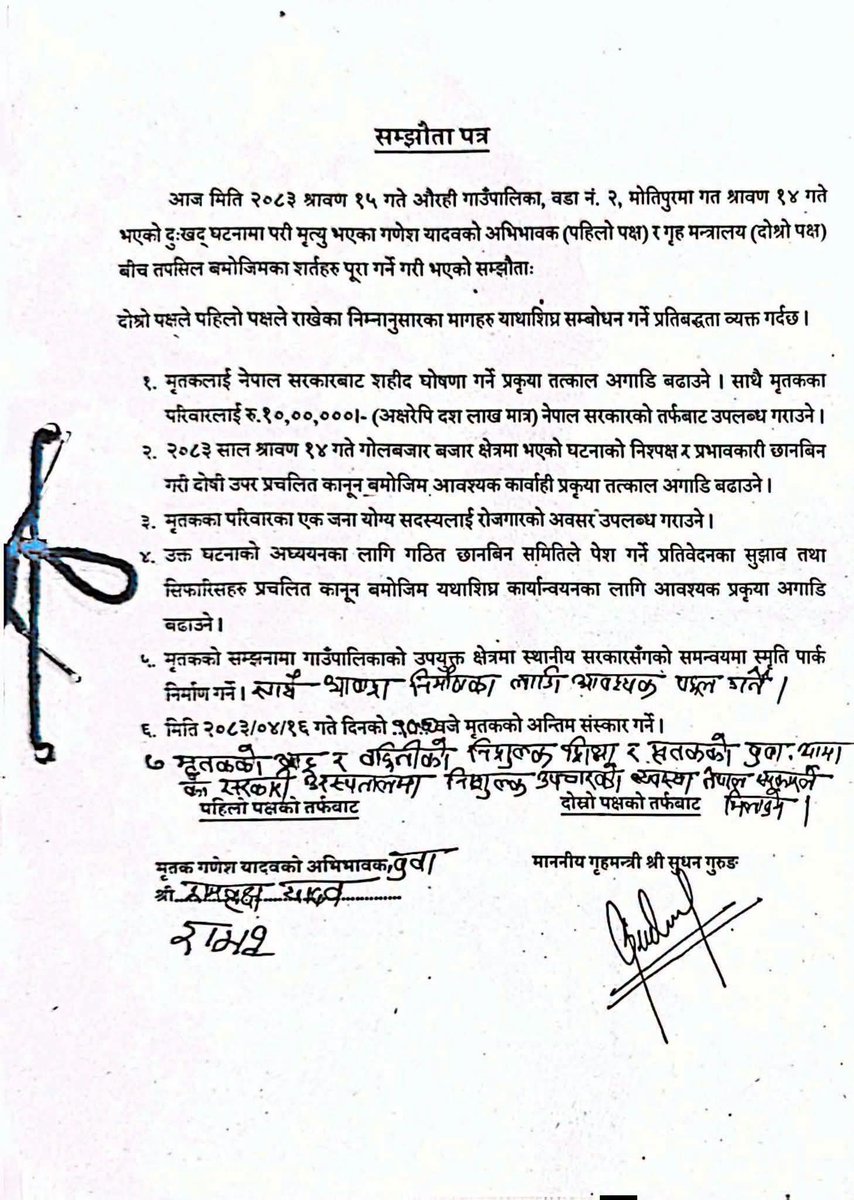 सम्झौता पत्र
आज मिति २०८३ श्रावण १५ गते औरही गाउँपालिका, वडा नं. २, मोतिपुरमा गत श्रावण १४ गते
भएको दुःखद् घटनामा परी मृत्यु भएका गणेश यादवको अभिभावक (पहिलो पक्ष) र गृह मन्त्रालय (दोश्रो पक्ष)
बीच तपसिल बमोजिमका शर्तहरु पूरा गर्ने गरी भएको सम्झौताः
दोश्रो पक्षले पहिलो पक्षले राखेका निम्नानुसारका मागहरु याथाशिघ्र सम्बोधन गर्ने प्रतिबद्धता व्यक्त गर्दछ ।
१. मृतकलाई नेपाल सरकारबाट शहीद घोषणा गर्ने प्रकृया तत्काल अगाडि बढाउने । साथै मृतकका
परिवारलाई रु.१०,००,०००।- (अक्षरेपि दश लाख मात्र) नेपाल सरकारको तर्फबाट उपलब्ध गराउने ।
२. २०८३ साल श्रावण १४ गते गोलबजार बजार क्षेत्रमा भएको घटनाको निश्पक्ष र प्रभावकारी छानबिन
गरी दोषी उपर प्रचलित कानून बमोजिम आवश्यक कार्वाही प्रकृया तत्काल अगाडि बढाउने ।
३. मृतकका परिवारका एक जना योग्य सदस्यलाई रोजगारको अवसर उपलब्ध गराउने ।
४. उक्त घटनाको अध्ययनका लागि गठित छानबिन समितिले पेश गर्ने प्रतिवेदनका सुझाव तथा
सिफारिसहरु प्रचलित कानून बमोजिम यथाशिघ्र कार्यान्वयनका लागि आवश्यक प्रकृया अगाडि
बढाउने ।
५. मृतकको सम्झनामा गाउँपालिकाको उपयुक्त क्षेत्रमा स्थानीय सरकारसँगको समन्वयमा स्मृति पार्क
निर्माण गर्ने । साथै निर्माणका लागि आवश्यक पहल गर्ने ।
६. मिति २०८३/०४/१६ गते दिनको बजे मृतकको अन्तिम संस्कार गर्ने ।
७ मृतकको भाइ र बहिनीको निशुल्क शिक्षा र मृतकको बुवा. आमा
का सरकारी अस्पतालमा निशुल्क उपचारको व्यवस्था नेपाल सरकारले
मिलाउने ।
पहिलो पक्षको तर्फबाट दोस्रो पक्षको तर्फबाट
मृतक गणेश यादवको अभिभावक, बुवा माननीय गृहमन्त्री श्री सुधन गुरुङ
श्री यादव